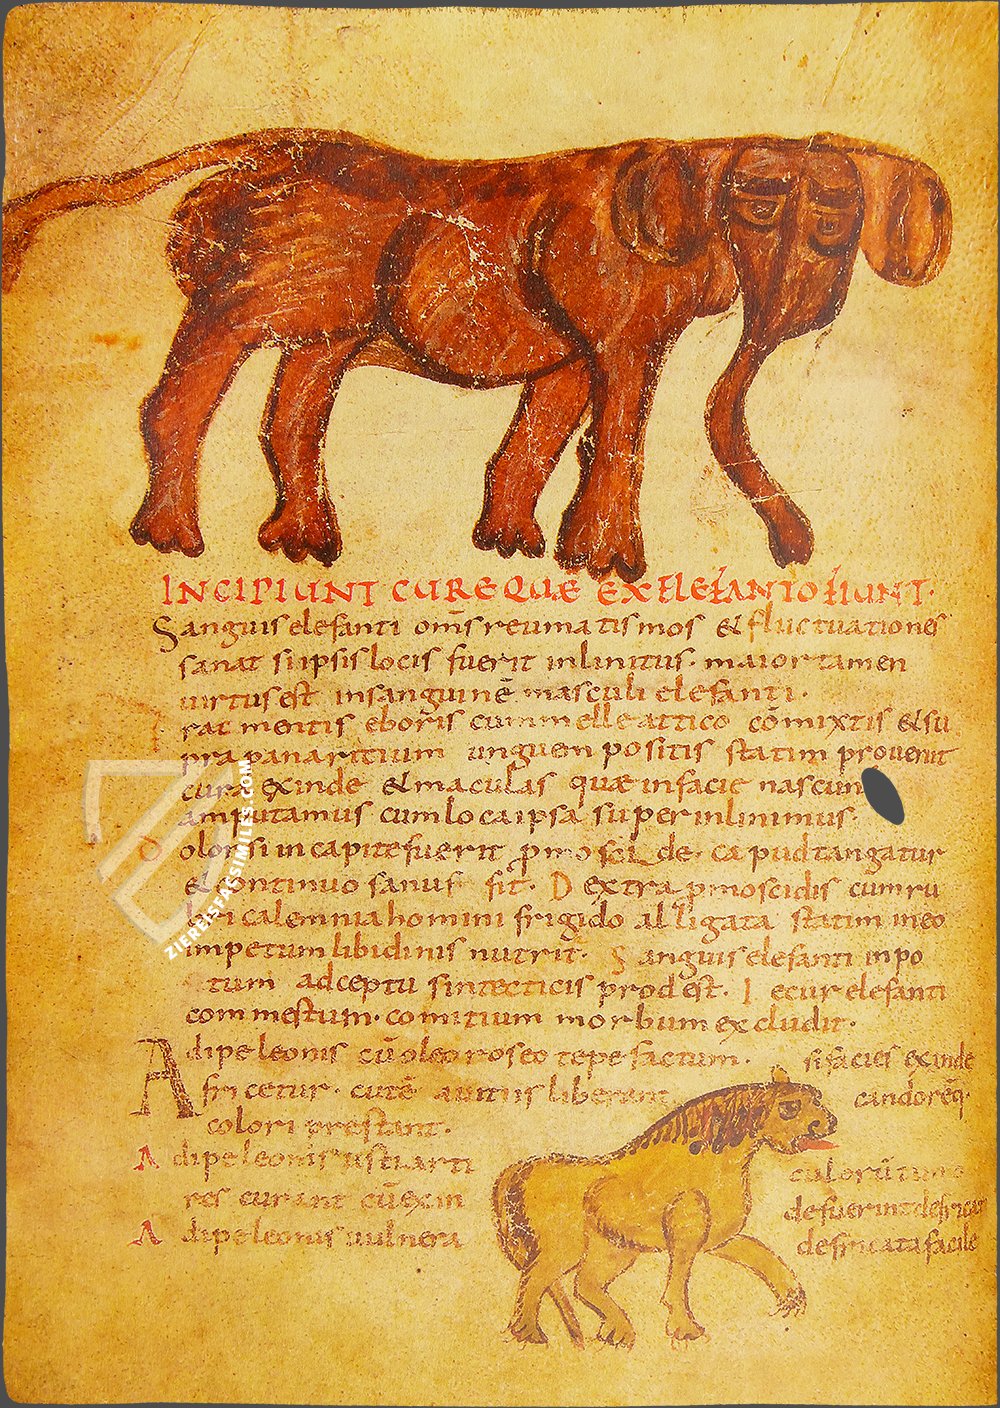 INCIPIUNT CURE QUE EX ELEFANTO FIUNT.
Sanguis elefanti om̅s reumatismos & fluctuationes
sanat si ipsis locis fuerit inlinitus. maior tamen
uirtus est in sanguine̅ masculi elefanti.
ramentis eboris cum melle attico co̅mixtis & su
pra panaritium unguem positis statim prouenit
cura exinde & maculas quae in facie nascun
amputamus cum loca ipsa superinlinimus.
Dolor si in capite fuerit p̲moscide caput tangatur
& continuo sanus fit. Dextra p̲moscidis cum ru
bri calemnia homini frigido alligata statim in eo
impetum libidinis nutrit. Sanguis elefanti in po
tum adceptu sintecticis prodest. Iecur elefanti
commestum. comitium morbum excludit.
Adipe leonis cu̅ oleo roseo tepefactum. si facies exinde
fricetur. cute̅ a uitiis liberant candore̅q.
colori prestant.
Adipe leonis usti arti culoru̅
res curant cu̅ exin de fuerint defricat
Adipe leonis uulnera defricata facile
ZIEREISFACSIMILES.COM